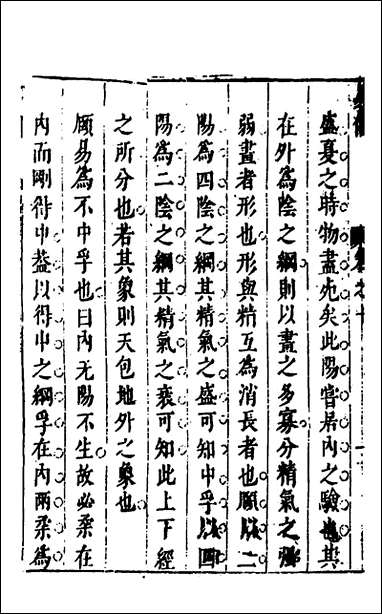 盛夏之時物盡死矣此陽嘗居內之驗也其
在外為陰之綱則以畫之多寡分精氣之強
弱畫者形也形與精互為消長者也頤以二
陽為四陰之綱其精氣之盛可知中孚以四
陽為二陰之綱其精氣之衰可知此上下經
之所分也若其象則天包地外之象也
頤易為不中孚也曰內无陽不生故必柔在
內而剛得中葢以得中之綱孚在內兩柔為